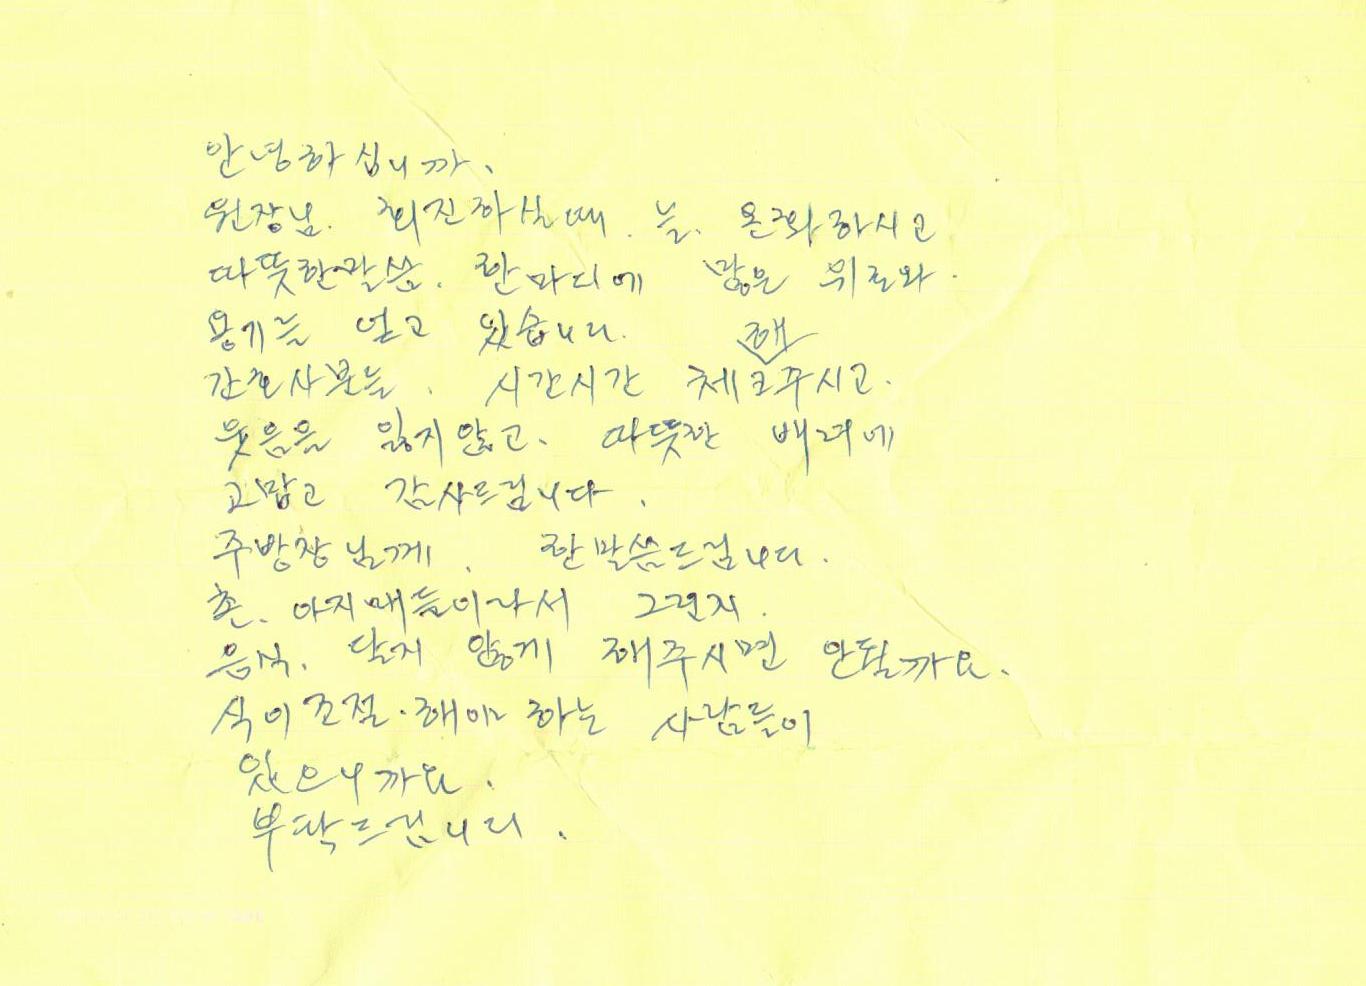 안녕하십니까.
원장님. 회진하실때. 늘. 온화하시고
따뜻한말씀. 한마디에 많은 위로와.
용기를 얻고 있습니다.
간호사분들. 시간시간 체크해주시고.
웃음을 잃지않고. 따뜻한 배려에
고맙고 감사드립니다.
주방장님께. 한말씀드립니다.
촌. 아지매들이라서 그런지.
음식. 달지 않게 해주시면 안될까요.
식이조절·해야 하는 사람들이
있으니까요.
부탁드립니다.